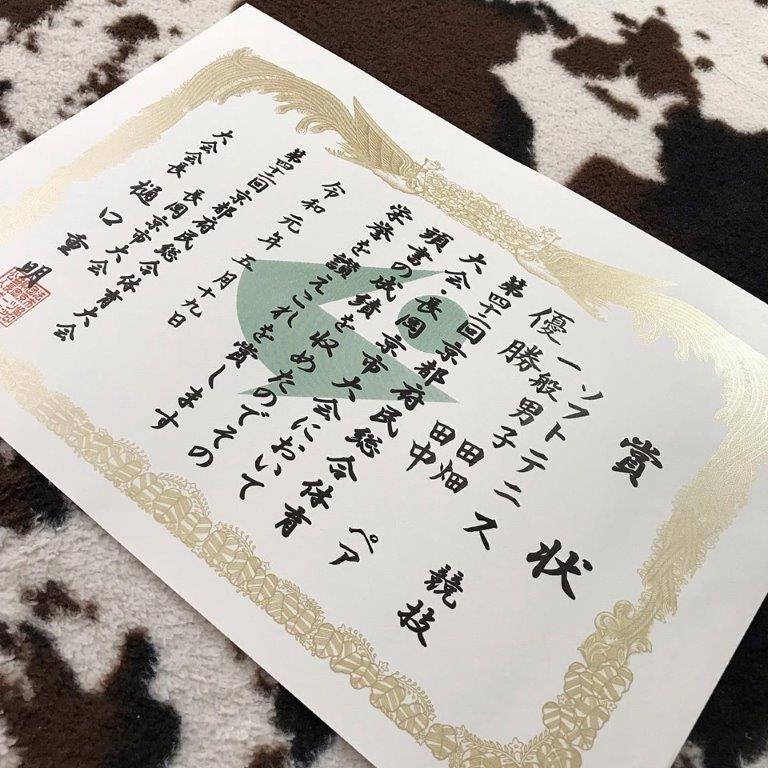 賞状
ソフトテニス競技
一般男子
優勝 田畑 田中 ペア
第四十二回京都府民総合体育
大会・長岡京市大会において
頭書の成績を収めたのでその
栄誉を讃えこれを賞します
令和元年五月十九日
第四十二回京都府民総合体育大会
長岡京市大会
大会会長 樋口重明